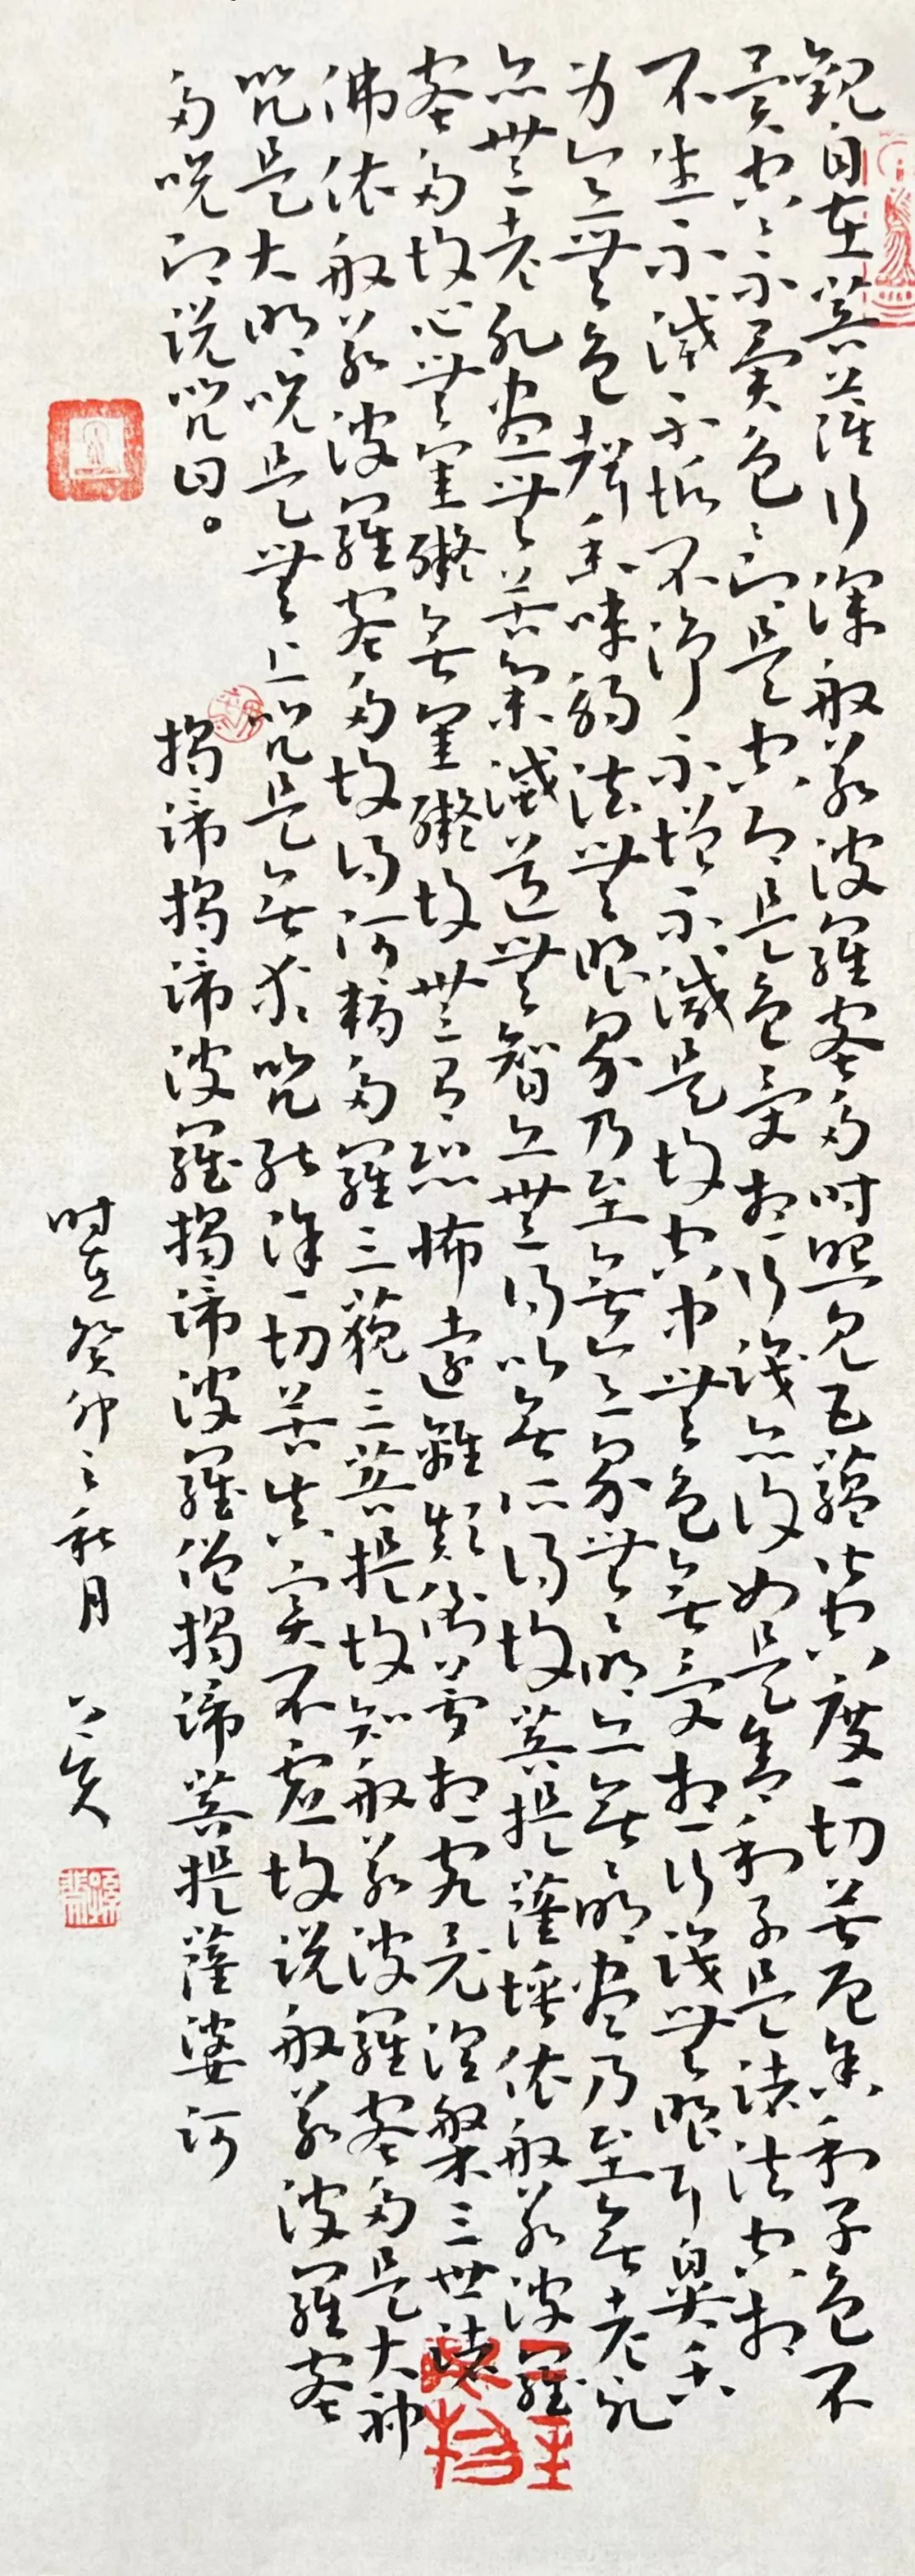 觀自在菩薩行深般若波羅蜜多時照見五蘊皆空度一切苦厄舍利子色不
異空空不異色色即是空空即是色受想行識亦復如是舍利子是諸法空相
不生不滅不垢不淨不增不減是故空中無色無受想行識無眼耳鼻舌
身意無色聲香味觸法無眼界乃至無意識界無無明亦無無明盡乃至無老死
亦無老死盡無苦集滅道無智亦無得以無所得故菩提薩埵依般若波羅
蜜多故心無罣礙無罣礙故無有恐怖遠離顛倒夢想究竟涅槃三世諸
佛依般若波羅蜜多故得阿耨多羅三藐三菩提故知般若波羅蜜多是大神
咒是大明咒是無上咒是無等咒能除一切苦真實不虛故說般若波羅蜜
多咒即說咒曰。 揭諦揭諦波羅揭諦波羅僧揭諦菩提薩婆訶
時在癸卯之秋月